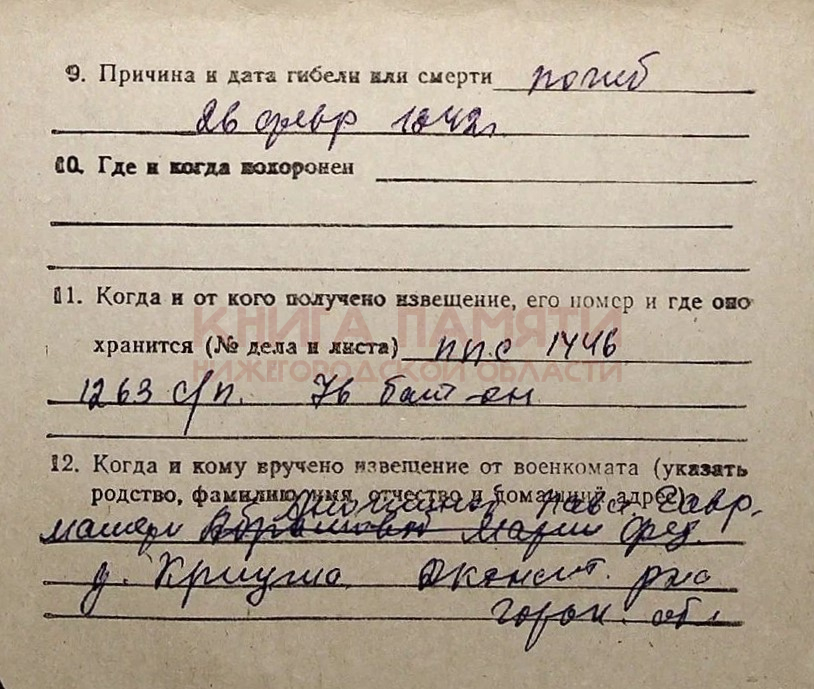 9. Причина и дата гибели или смерти погиб
26 февр 1942г
10. Где и когда похоронен
11. Когда и от кого получено извещение, его номер и где оно
КНИГА ПАМЯТИ
хранится (№ дела и листа) ппс 1446
НИЖЕГОРОДСКОЙ ОБЛАСТИ
1263 с/п. 76 бат-он
12. Когда и кому вручено извещение от военкомата (указать
родство, фамилию, имя, отчество и домашний адрес)
Гавр.
матери Марии Фед.
д. Криуша р-на
горьк. обл